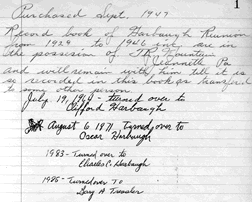 1
Purchased Sept. 1947
Record book of Harbaugh Reunion
from 1929 to 1946 and are in
the possession of J.R. Fountain
Jeannette Pa
and will remain with him till it is
so recorded in this book as transfered
to some other person
July 19, 1969 - turned over to
Clifford Harbaugh
August 6 1971 Turned over to
Oscar Harbaugh
1983 - Turned over to
Charles C. Harbaugh
1985 - Turned over To
Gary A Tressler